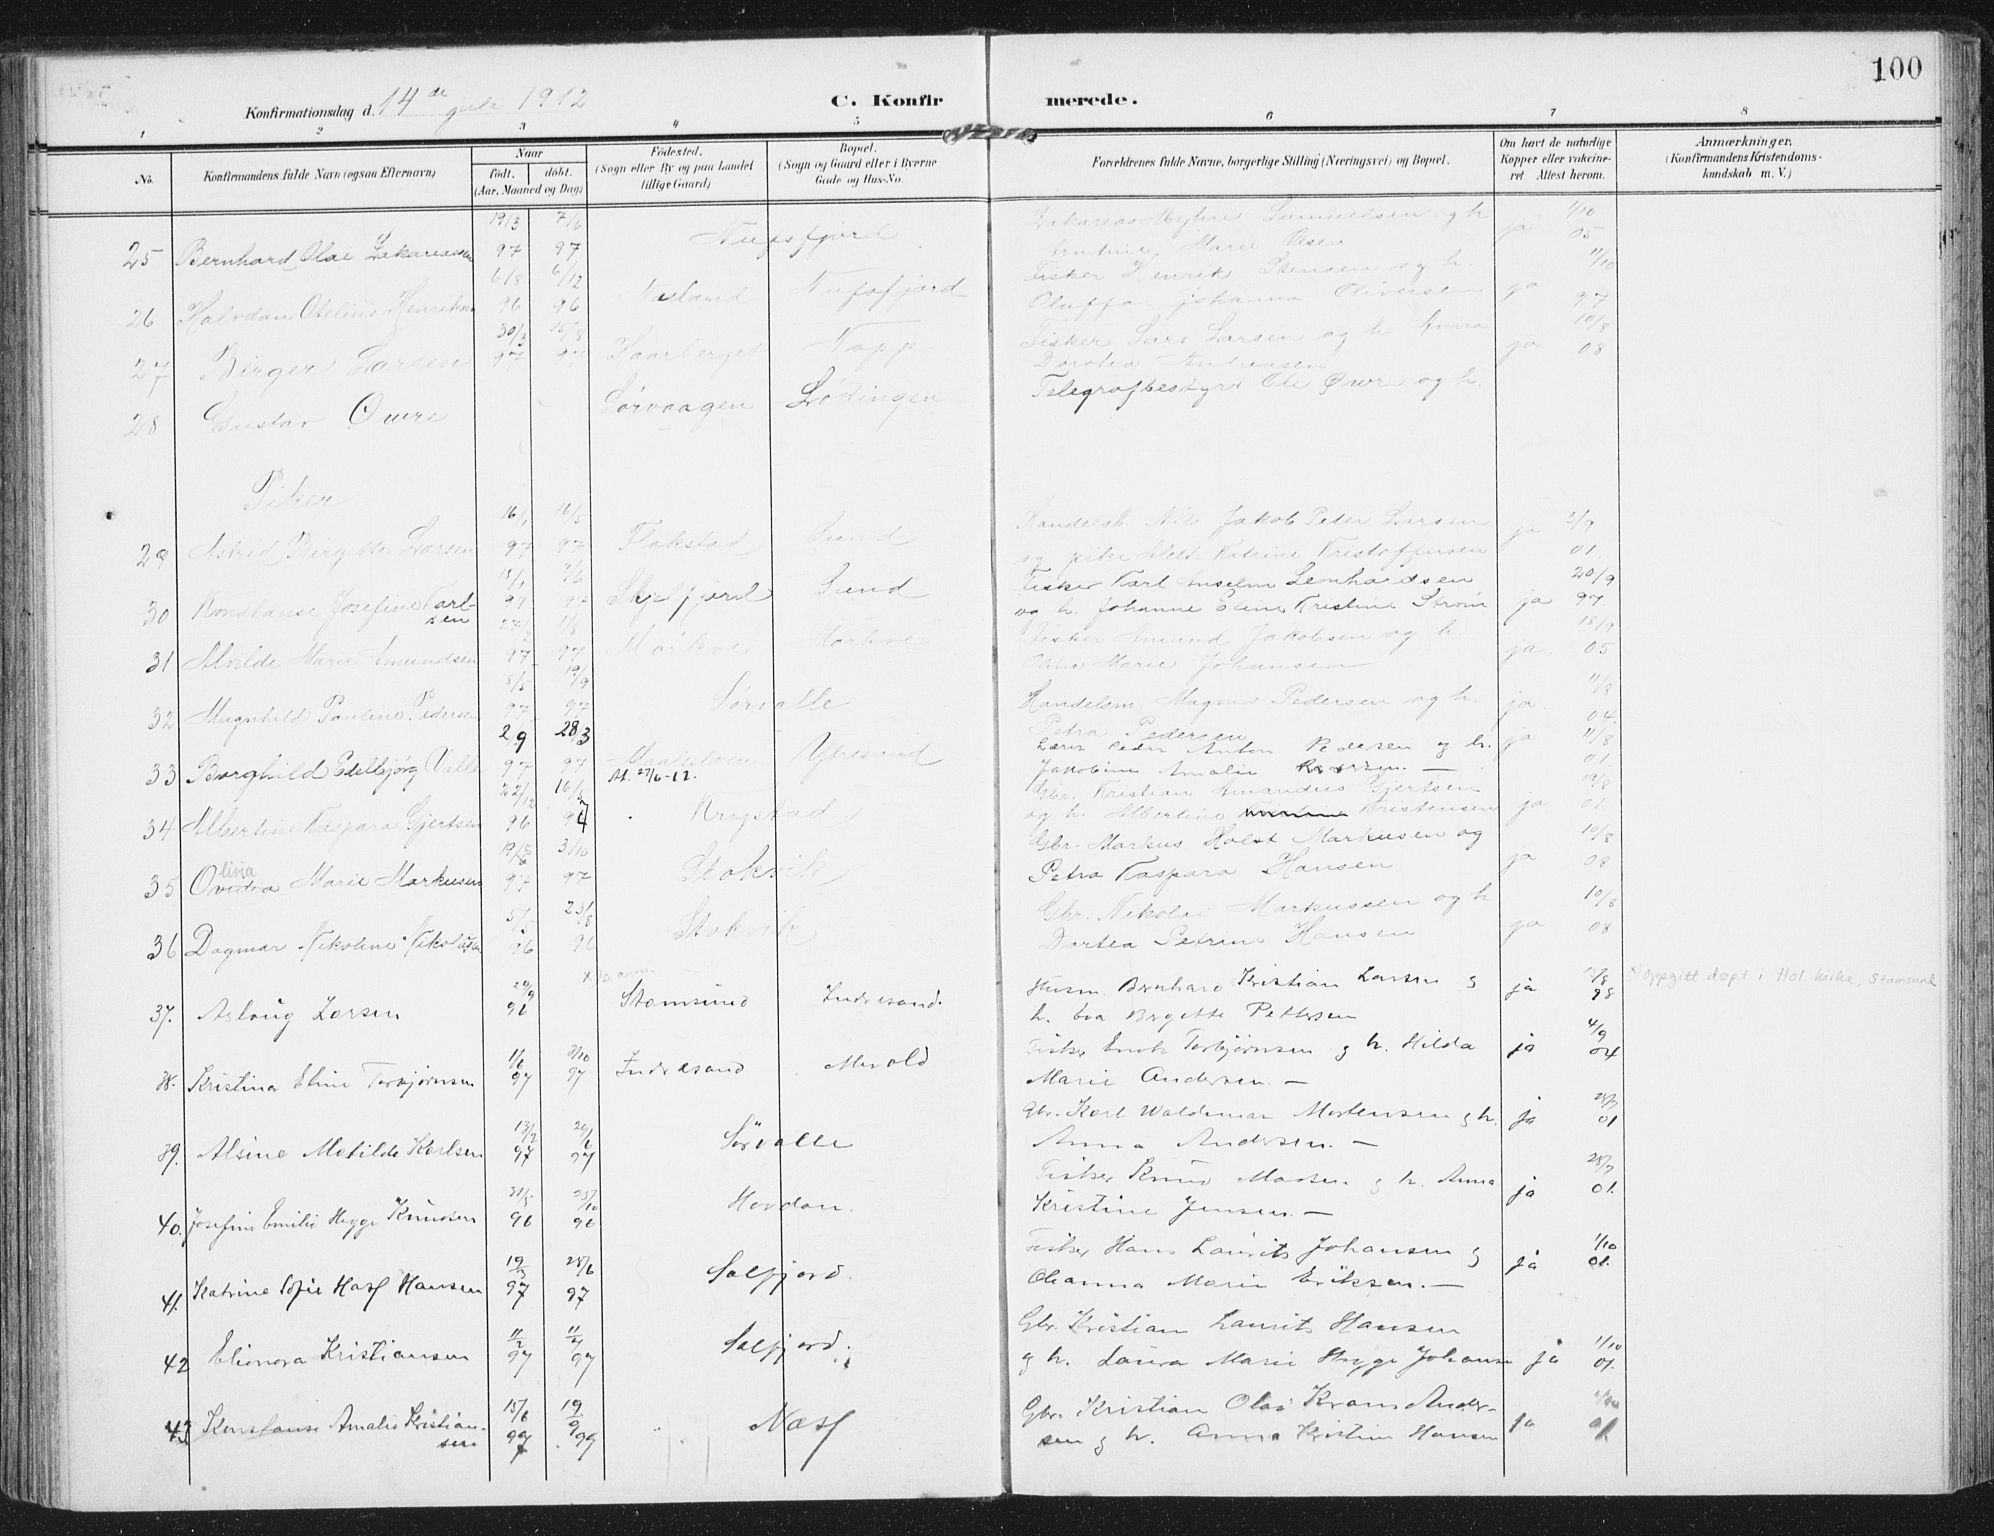 100
Konfirmationsdag d. 14de juli 1912
C. Konfirmerede.
1 2 3 4 5 6 7 8
No.
Konfirmandens fulde Navn (ogsaa Efternavn)
Naar
födt. döbt.
(Aar, Maaned og Dag)
Födested.
(Sogn eller By og paa Landet tillige Gaard)
Bopæl.
(Sogn og Gaard eller i Byerne Gade og Hus-No.
Forældrenes fulde Navne, borgerlige Stilling (Næringsvei) og Bopæl.
Om havt de naturlige Kopper eller vaccineret Attest herom.
Anmærkninger.
(Konfirmandens Kristendomskundskab m. V.)
25 Bernhard Olai Zakariassen 19/3 97 7/6 97 Nufsfjord
Zakarias Samuelsen og h. Marie Olsen ja 1/10 05
26 Halvdan Otelius Henriksen 6/8 96 6/12 96 Nufsfjord
Fisker Henrik Stensen og h. Johanna Oliversen ja 11/10 97
27 Birger Larsen 30/3 97 15/8 97 Napp
Fisker Lars Larsen og h. Anna Dorotea Andreasen ja 10/8 08
28 Gustav Øwre Sørvaagen Lødingen
Telegrafbestyrer Ole Øwre og h.
Piker
29 Astrid Birgitte Larsen 16/1 97 16/5 97 Flakstad Sund
Handelsb. Nils Jakob Peter Larsen og pike Katrine Kristoffersen ja 2/9 01.
30 Konstanse Josefine Karlsen 18/1 97 7/6 97 Skjelfjord Sund
Fisker Karl Anselm Leonhardsen og h. Johanne Eline Kristine Strøm ja 20/9 97
31 Alvilde Marie Amundsen 27/2 97 1/8 97 Mørkve Mørkve
Fisker Amund Jakobsen og h. Oline Marie Johansen ja 18/9 05
32 Magnhild Pauline Pedersen 8/5 97 19/9 97 Sørvalle
Handelsm. Magnus Pedersen og h. Petra Pedersen ja. 11/8 04.
33 Borghild Edelbjørg Valle 2/9 97 28/3 97 Ytresand
At. 27/6-12.
Lærer Peder Anton Pedersen og h. Jakobine Amalie — ja 11/8 01.
34 Albertine Kaspara Gjertsen 22/12 96 16/5 97 Krystad
Gbr. Kristian Amandus Gjertsen og h. Albertine Kristensen ja 19/8 01.
35 Olivia Marie Markusen 97 3/10 97 Stokvik
Gbr. Markus Holst Markusen og Petra Kaspara Hansen ja 10/8 08
36 Dagmar Nikoline Nikolaisen 5/5 96 23/8 96 Stokvik
Gbr. Nikolai Markussen og h Dortea Petrine Hansen ja 10/8 08
37. Aslaug Larsen 29/9 96 Stamsund Indresand.
Husm. Bernhard Kristian Larsen g h. Eva Birgitte Pettersen ja 15/8 98
x) oppgitt døpt i Hol kirke, Stamsund
38. Kristina Eline Torbjørnsen 1/6 97 3/10 97 Indresand Mevold
Fisker Enok Torbjørnsen g h. Hilda Marie Andersen. — ja 4/9 04
39. Alsine Motilde Karlsen 13/2 97 20/6 97 Sørvalle
Gbr. Karl Waldemar Mortensen g h. Anna Andersen. — ja 28/7 01
40. Josefine Emilie Hygge Knudsen 31/5 96 25/10 96 Hovdan.
Fisker Knud Madsen g h. Anna Kristine Jensen. — ja 28/7 01.
41. Katrine Sofie Hass Hansen 19/3 97 28/6 97 Solfjord.
Fisker Hans Laurits Johansen g Olianna Marie Eriksen. — ja 1/10 01.
42 Elionora Kristiansen 11/2 97 11/4 97 Solfjord.
Gbr. Kristian Laurits Hansen g h. Laura Marie Hygge Johansen ja 1/10 01.
43 Konstanse Amalie Kristiansen 15/6 97 19/9 97 Næss
Gbr. Kristian Olai Krans Andersen g h. Anna Kristine Hansen ja